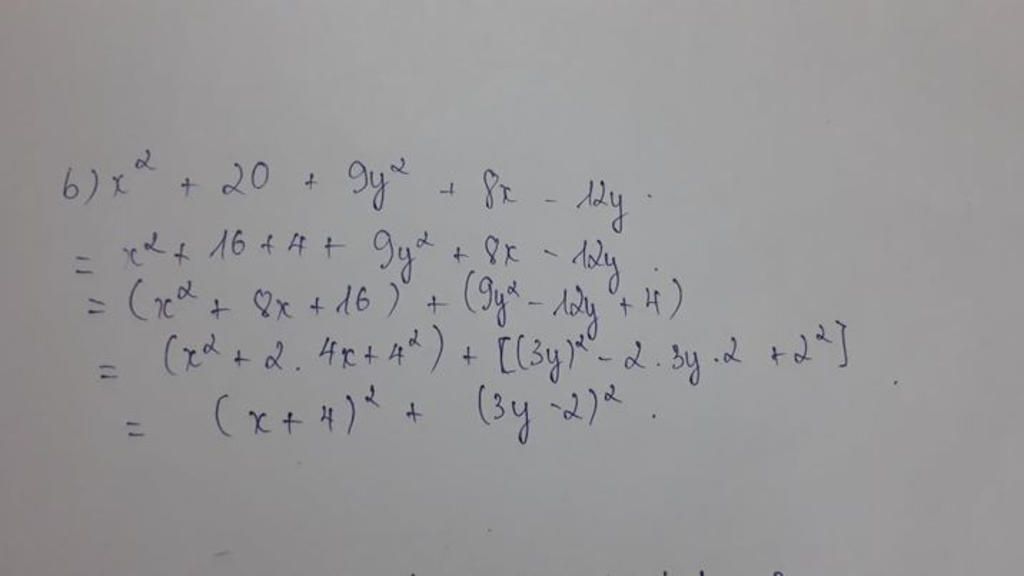 6) x² + 20 + 9y² + 8x - 12y.
= x² + 16 + 4 + 9y² + 8x - 12y.
= (x² + 8x + 16) + (9y² - 12y + 4)
= (x² + 2. 4x + 4²) + [(3y)² - 2.3y.2 + 2²]
= (x + 4)² + (3y - 2)².